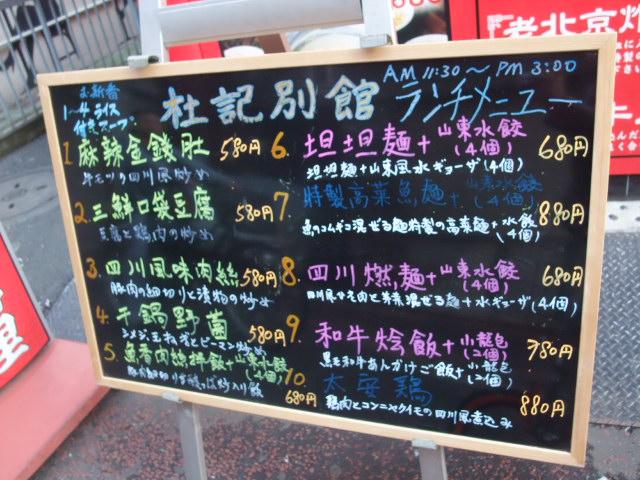 老北京炸
杜記別館 ランチメニュー
AM 11:30〜PM 3:00
1〜4 ライス
付き スープ
1 麻辣金錢肚 580円
牛モツの四川風炒め
2. 三鮮口袋豆腐 580円
豆腐と鶏肉の炒め
3. 四川風味肉絲 580円
豚肉の細切りと漬物の炒め
4. 干鍋野菌 580円
シメジ、玉ねぎとピーマン炒め
5. 魚香肉絲拌飯+山東水餃
680円
6. 坦坦麺+山東水餃(4個) 680円
坦坦麺+山東風水ギョーザ(4個)
7. 特製高菜魚麺+山東水餃(4個) 880円
魚のコムギコ混ぜる麺特製の高菜麺+水餃(4個)
8. 四川燃麺+山東水餃(4個) 680円
水ギョーザ(4個)
9 和牛烩飯+小籠包(2個) 780円
黒毛和牛あんかけご飯+小籠包(2個)
10. 太安鶏 880円
鶏肉とコンニャクイモの四川風煮込み